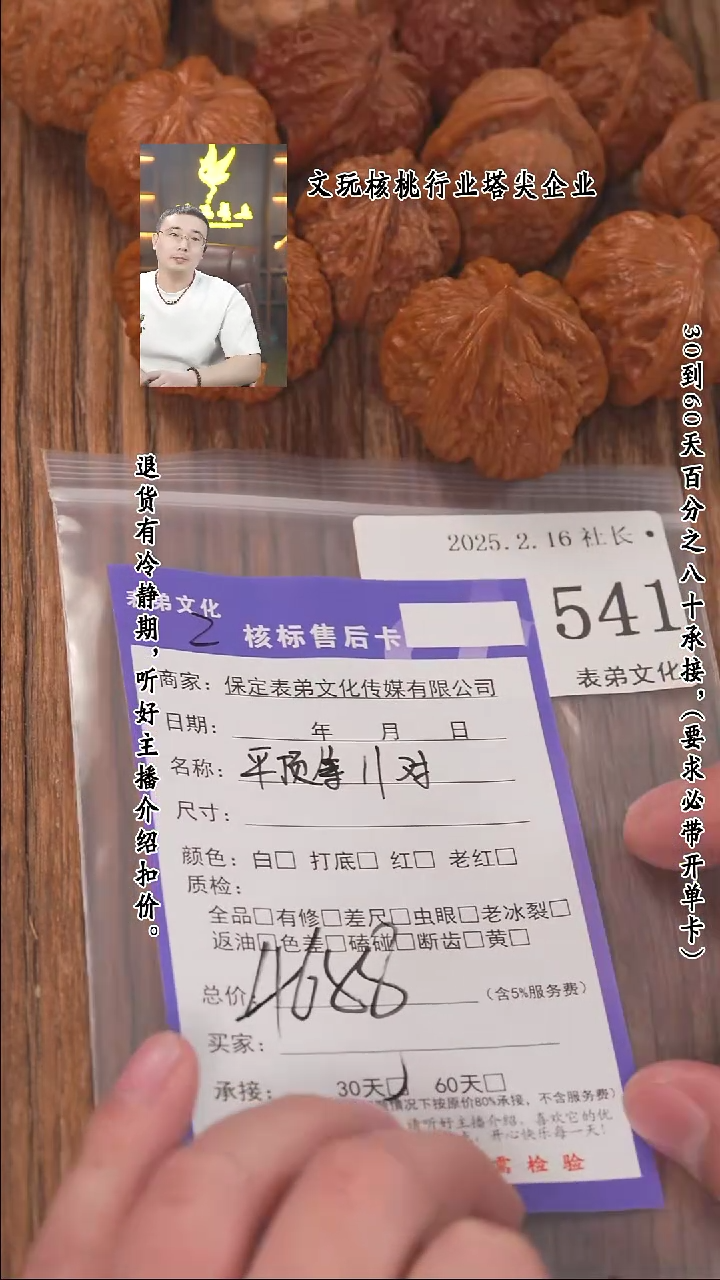 文玩核桃行业塔尖企业
30到60天百分之八十承接，（要求必带开单卡）
退货有冷静期，听好主播介绍扣价。
2025.2.16 社长
541
表弟文化
表弟文化
2
核标售后卡
商家：保定表弟文化传媒有限公司
日期： 年 月 日
名称：平顶 11对
尺寸：
颜色：白□ 打底□ 红□ 老红□
质检：
全品□有修□差尺□虫眼□老冰裂□
返油□色差□磕碰□断齿□黄□
总价 4688 （含5%服务费）
买家：
承接： 30天□ 60天□
情况下按原价80%承接，不含服务费）
请听好主播介绍，喜欢它的优
点，开心快乐每一天！
需检验